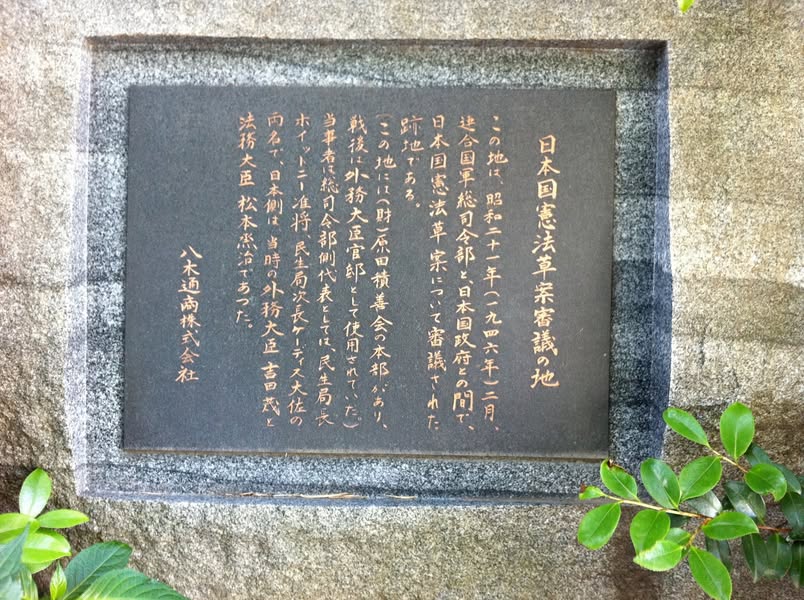 日本国憲法草案審議の地
この地は、昭和二十一年(一九四六年)二月、
連合国軍総司令部と日本国政府との間で、
日本国憲法草案について審議された
跡地である。
(この地には(財)原田積善会の本部があり、
戦後は外務大臣官邸として使用されていた)
当事者は総司令部側代表としては、民生局長
ホイットニー准将、民生局次長ケーディス大佐の
両名で、日本側は、当時の外務大臣 吉田茂と
法務大臣 松本烝治であった。
八木通商株式会社